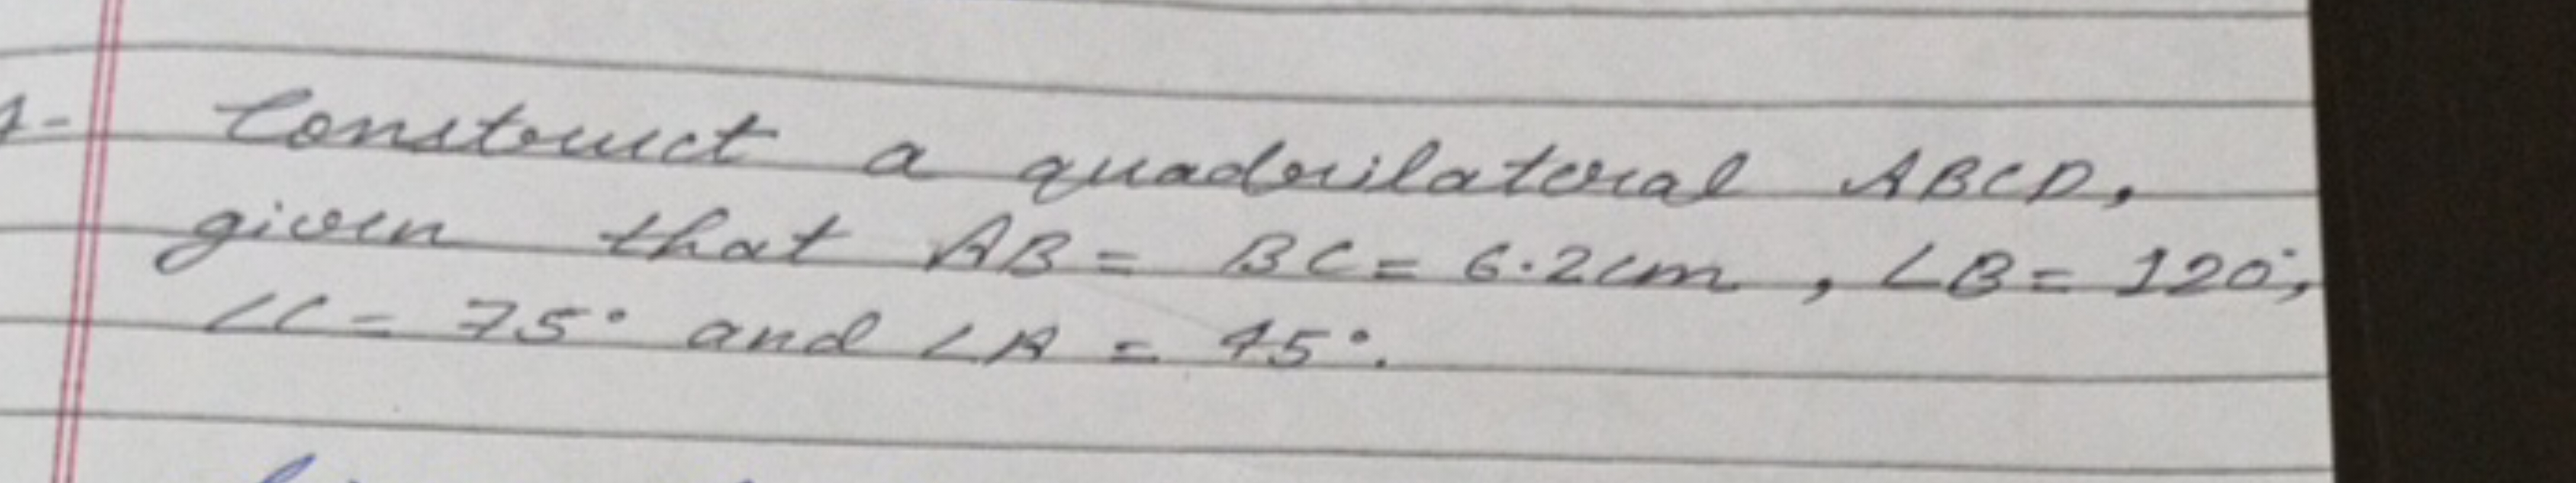 1- Construct a quadrilateral ABCD,
given that AB = BC = 6.2cm, ∠B = 120°,
∠C = 75° and ∠A = 45°.